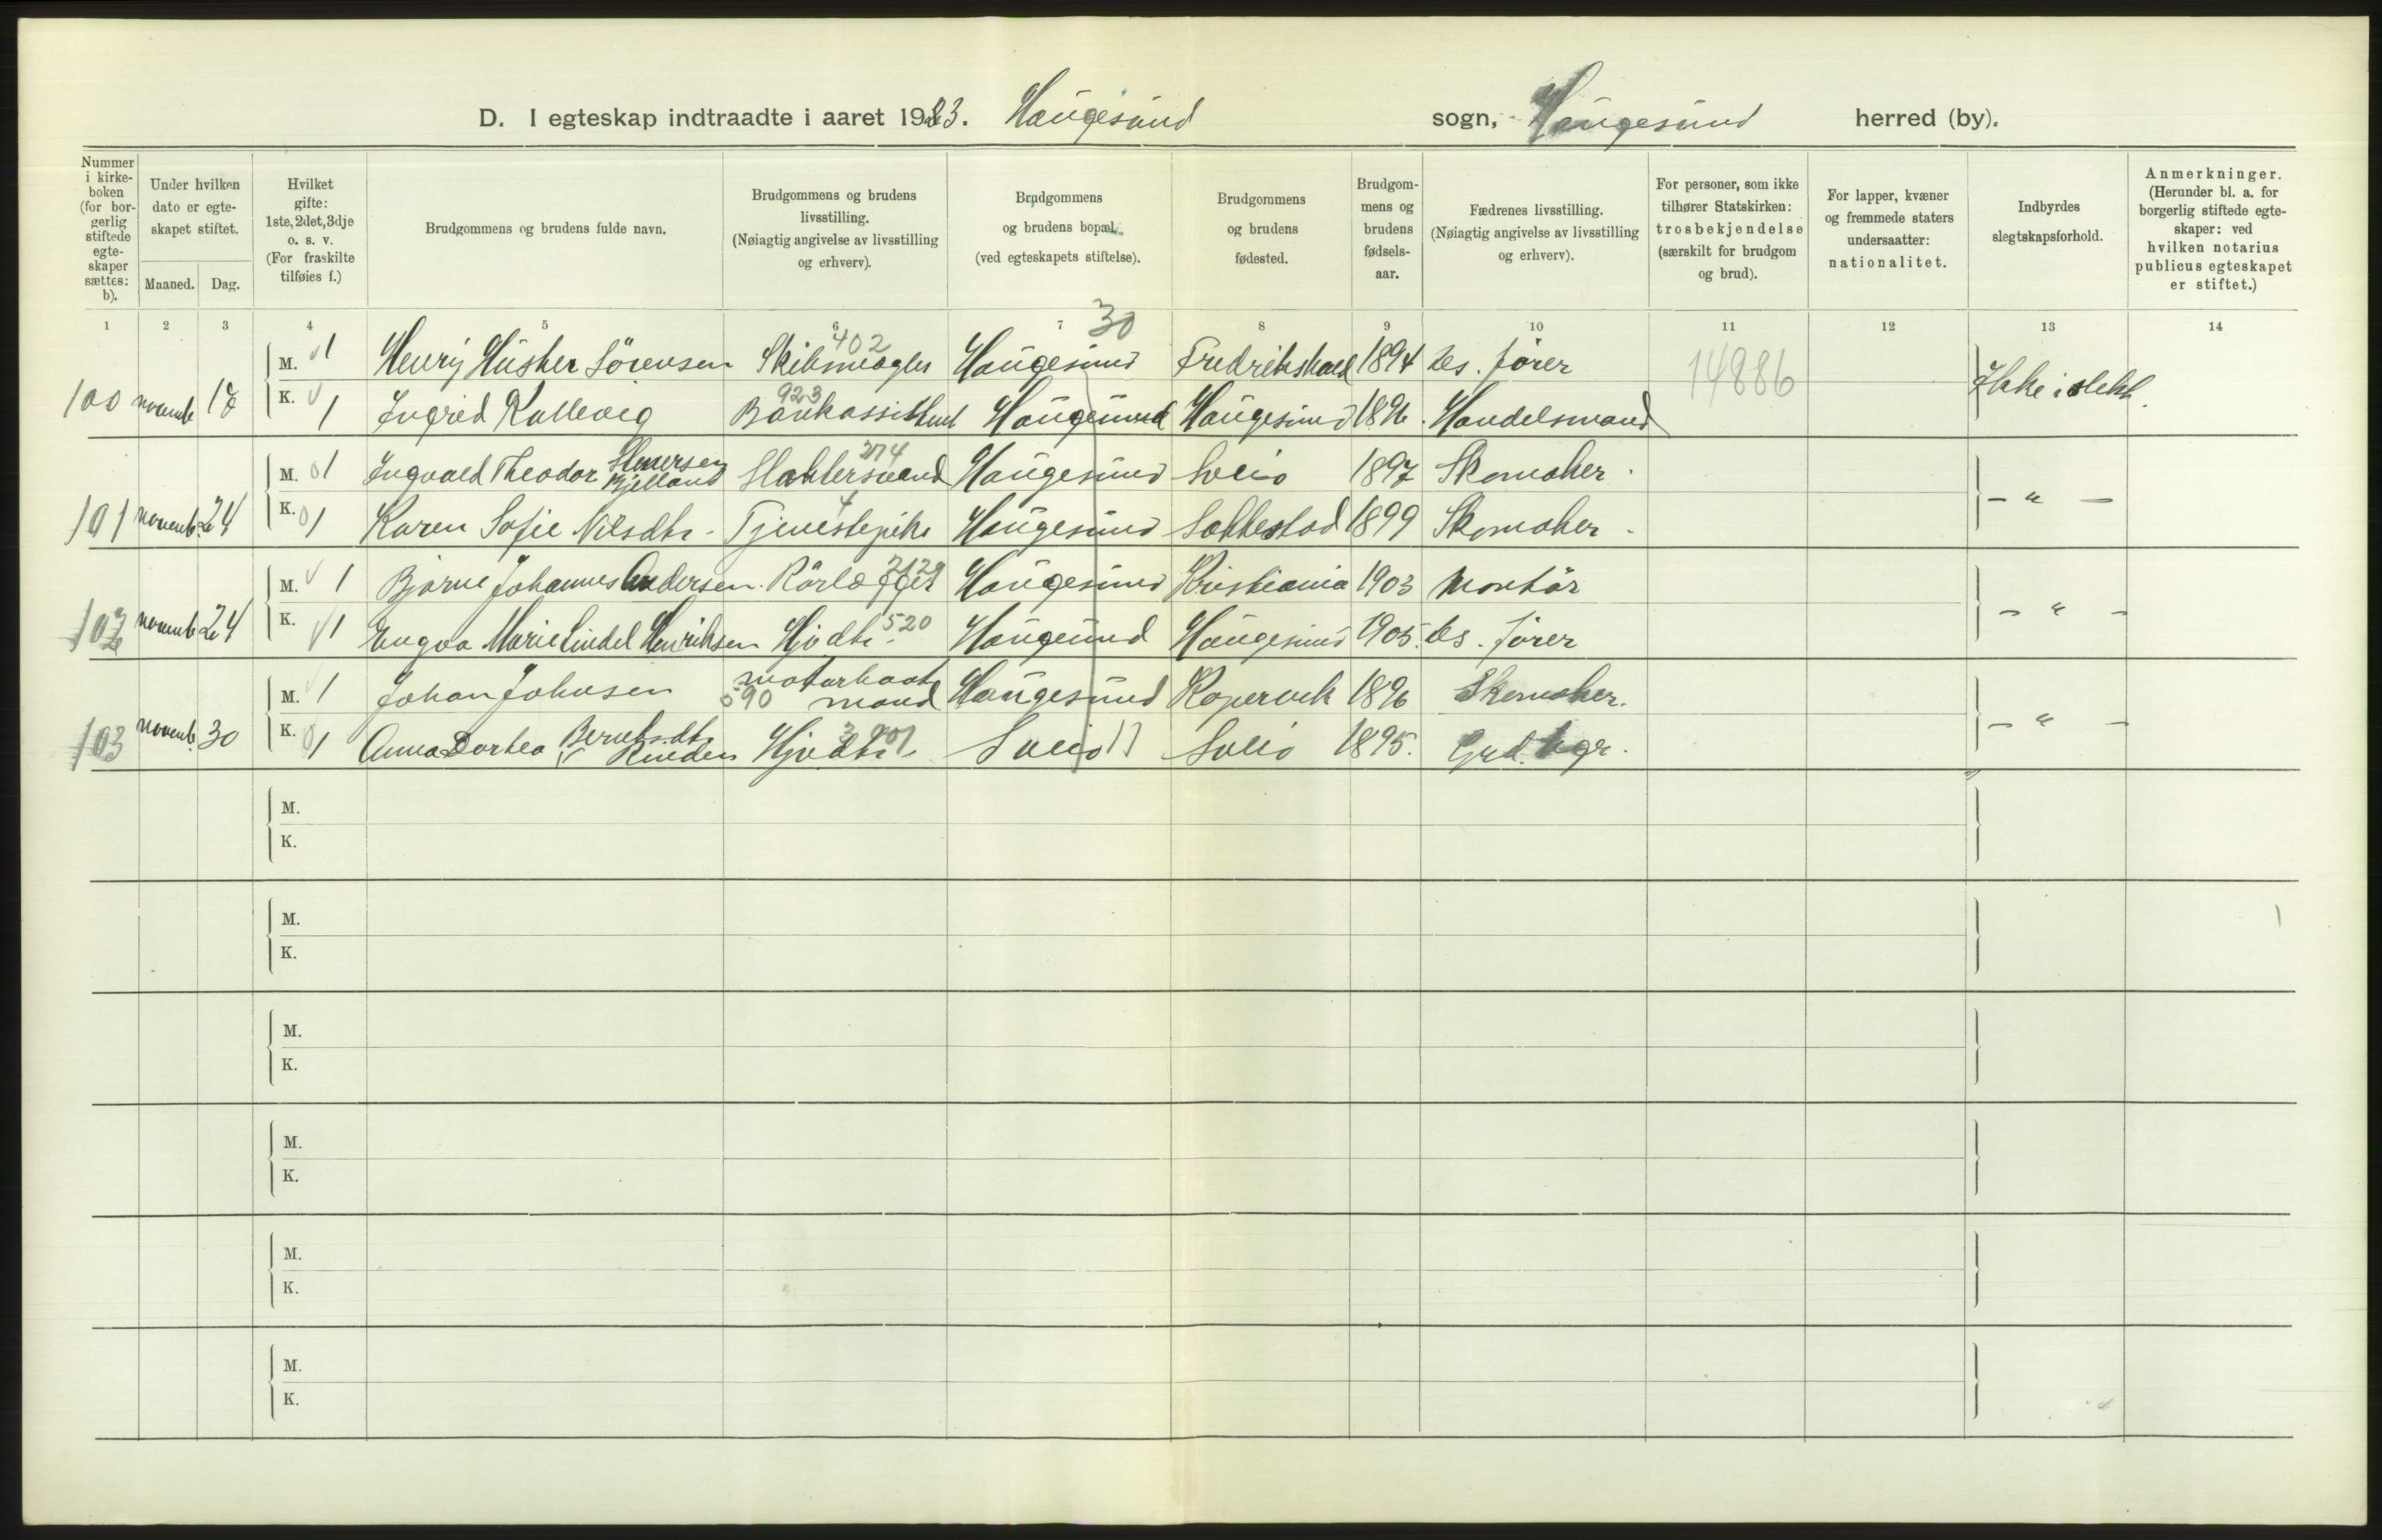 D. I egteskap indtraadte i aaret 1923. Haugesund sogn, Haugesund herred (by).
Nummer i kirke-boken (for bor-gerlig stiftede egte-skaper sættes: b).
Under hvilken dato er egte-skapet stiftet.
Maaned. Dag.
Hvilket gifte: 1ste, 2det, 3dje o. s. v. (For fraskilte tilføies f.)
Brudgommens og brudens fulde navn.
Brudgommens og brudens livsstilling. (Nøiagtig angivelse av livsstilling og erhverv).
Brudgommens og brudens bopæl (ved egteskapets stiftelse).
Brudgommens og brudens fødested.
Brudgom-mens og brudens fødsels-aar.
Fædrenes livsstilling. (Nøiagtig angivelse av livsstilling og erhverv).
For personer, som ikke tilhører Statskirken: trosbekjendelse (særskilt for brudgom og brud).
For lapper, kvæner og fremmede staters undersaatter: nationalitet.
Indbyrdes slegtskapsforhold.
Anmerkninger. (Herunder bl. a. for borgerlig stiftede egte-skaper: ved hvilken notarius publicus egteskapet er stiftet.)
1 2 3 4 5 6 7 8 9 10 11 12 13 14
30
402
M. 1 Henry Husher Sörensen Skibsmægler Haugesund Fredrikshald 1894 Des. förer
14886
100 novemb 18 Ikke i slekt.
923
K. 1 Ingrid Kallevig Bankassistent Haugesund Haugesund 1896. Handelsmand
274
M. 1 Ingvald Theodor Bjelland Slaktersvend Haugesund Sveio 1897 Skomaker.
101 novemb. 24 - " -
4
K. 1 Karen Sofie Nilsdtr. Tjenestepike Haugesund Sokkestad 1899 Skomaker.
2129
M. 1 Bjarne Johannes Andersen. Rörlægger Haugesund Kristiania 1903 Montör
102 novemb 24 - " -
520
K. 1 Engva Marie Lindel Henriksen Hjvdtr. Haugesund Haugesund 1905. Des. förer
M. 1 Johan Johnsen motorbaat mand 590 Haugesund Kopervik 1896 Skomaker.
103 novemb. 30 - " -
K. 1 Anna Dortea Berntsdtr. Hjvdtr. Sveio Sveio 1895. Grd.bgr.
M.
K.
M.
K.
M.
K.
M.
K.
M.
K.
M.
K.